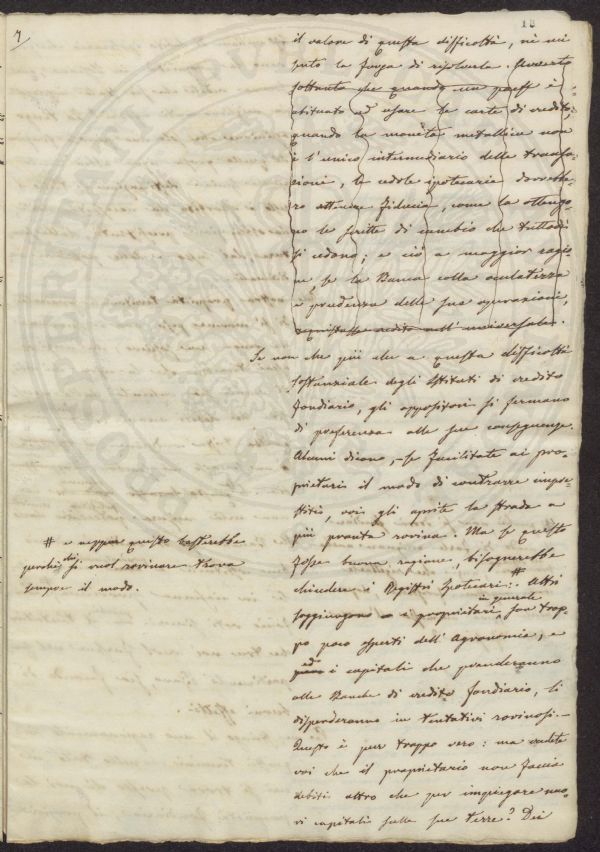 7
18
il valore di questa difficoltà, nè mi
sento la forza di risolverla. Avverto
soltanto che quando un paese è
abituato ad usare le carte di credito,
quando la moneta metallica non
è l'unico intermediario delle transa-
zioni, le cedole ipotecarie dovrebbe-
ro ottenere fiducia, come la ottengo-
no le scritte di cambio che tuttodì
si cedono; e ciò a maggior ragio-
ne, se la Banca colla oculatezza
e prudenza delle sue operazioni,
acquistasse credito nell'universale.
Se non che più che a questa difficoltà
sostanziale degli Istituti di credito
fondiario, gli oppositori si fermano
di preferenza alle sue conseguenze.
Alcuni dicono, - se facilitate ai pro-
prietari il modo di contrarre impre-
stiti, voi gli aprite la strada a
più pronta rovina. Ma se questa
fosse buona ragione, bisognerebbe
chiudere i Registri Ipotecari: # Altri
soggiungono i proprietari in generale son trop-
po poco esperti dell'Agronomia, e
i capitali che prenderanno
alle Banche di credito fondiario, li
disperderanno in tentativi rovinosi. -
Questo è pur troppo vero: ma credete
voi che il proprietario non faccia
debiti altro che per impiegare nuo-
vi capitali sulle sue terre? Dei
# e neppur questo basterebbe
perchè chi si vuol rovinare trova
sempre il modo.